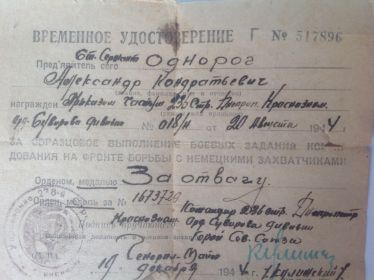 ВРЕМЕННОЕ УДОСТОВЕРЕНИЕ Г № 517896
Ст. Сержант ОДНОРОГ
Пред'явитель сего
Александр Кондратьевич
награжден Приказом Части 236 Стр. Днепроп. Краснозн.
орд. Суворова дивизии № 018/н от 20 Августа 1944 г.
ЗА ОБРАЗЦОВОЕ ВЫПОЛНЕНИЕ БОЕВЫХ ЗАДАНИЙ КОМ
ДОВАНИЯ НА ФРОНТЕ БОРЬБЫ С НЕМЕЦКИМИ ЗАХВАТЧИКАМИ
Орденом, медалью За отвагу.
Орден, медаль за № 1673729
Командир 236 стр. Днепропетр
Краснознам Орд Суворова дивизии
Герой Сов. Союза
Генерал-Майор
19 декабря 1944 г. /Кулижский/